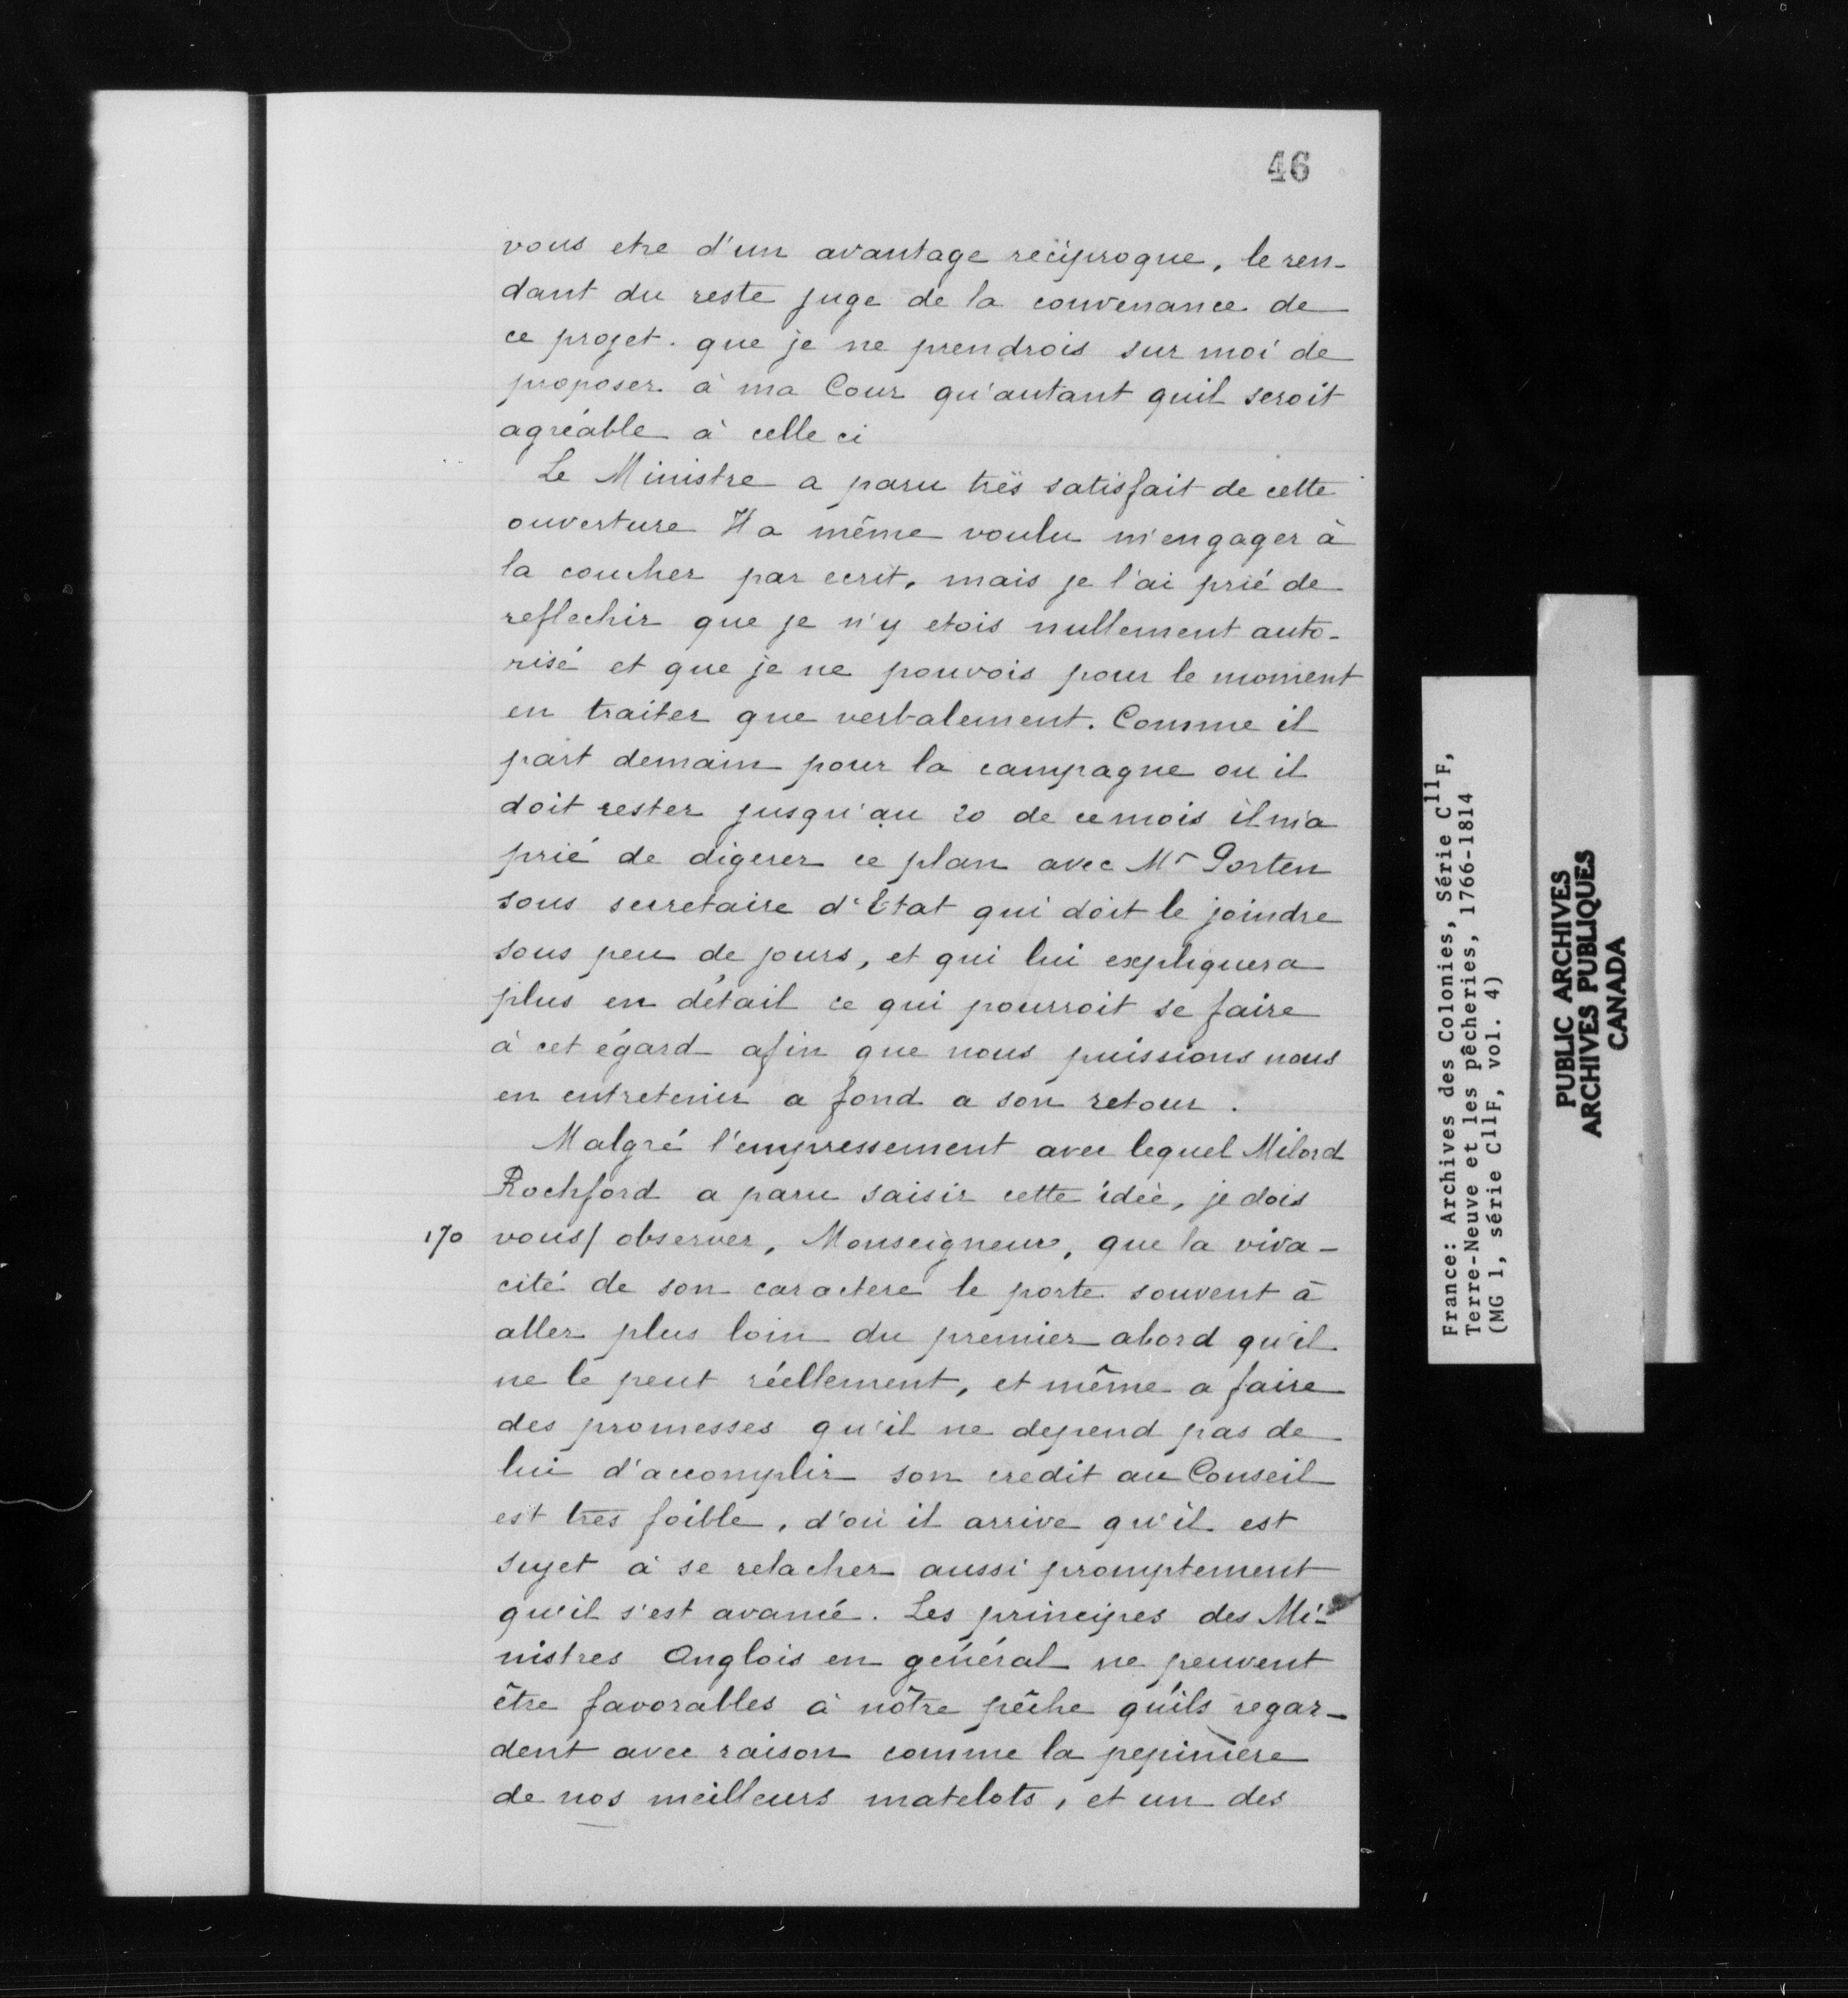 46
vous etre d'un avantage reciproque, le ren-
dant du reste juge de la convenance de
ce projet. que je ne prendrois sur moi de
proposer à ma Cour qu'autant quil seroit
agréable à celle ci
Le Ministre a paru très satisfait de cette
ouverture Il a même voulu m'engager à
la coucher par ecrit, mais je l'ai prié de
reflechir que je n'y etois nullement auto-
risé et que je ne pouvois pour le moment
en traiter que verbalement. Comme il
part demain pour la campagne ou il
doit rester jusqu'au 20 de ce mois il m'a
prié de digerer ce plan avec Mr Porten
sous secretaire d'Etat qui doit le joindre
sous peu de jours, et qui lui expliquera
plus en détail ce qui pourroit se faire
à cet égard afin que nous puissions nous
en entretenir a fond a son retour.
Malgré l'empressement avec lequel Milord
Rochford a paru saisir cette idée, je dois
170 vous/ observer, Monseigneur, que la viva-
cité de son caractere le porte souvent à
aller plus loin du premier abord qu'il
ne le peut réellement, et même a faire
des promesses qu'il ne depend pas de
lui d'accomplir son credit au Conseil
est tres foible, d'où il arrive qu'il est
sujet à se relacher aussi promptement
qu'il s'est avancé. Les principes des Mi-
nistres Anglois en général ne peuvent
être favorables à nôtre pêche qu'ils regar-
dent avec raison comme la pepiniere
de nos meilleurs matelots, et un des
France: Archives des Colonies, Série C11F,
Terre-Neuve et les pêcheries, 1766-1814
(MG 1, série C11F, vol. 4)
PUBLIC ARCHIVES
ARCHIVES PUBLIQUES
CANADA